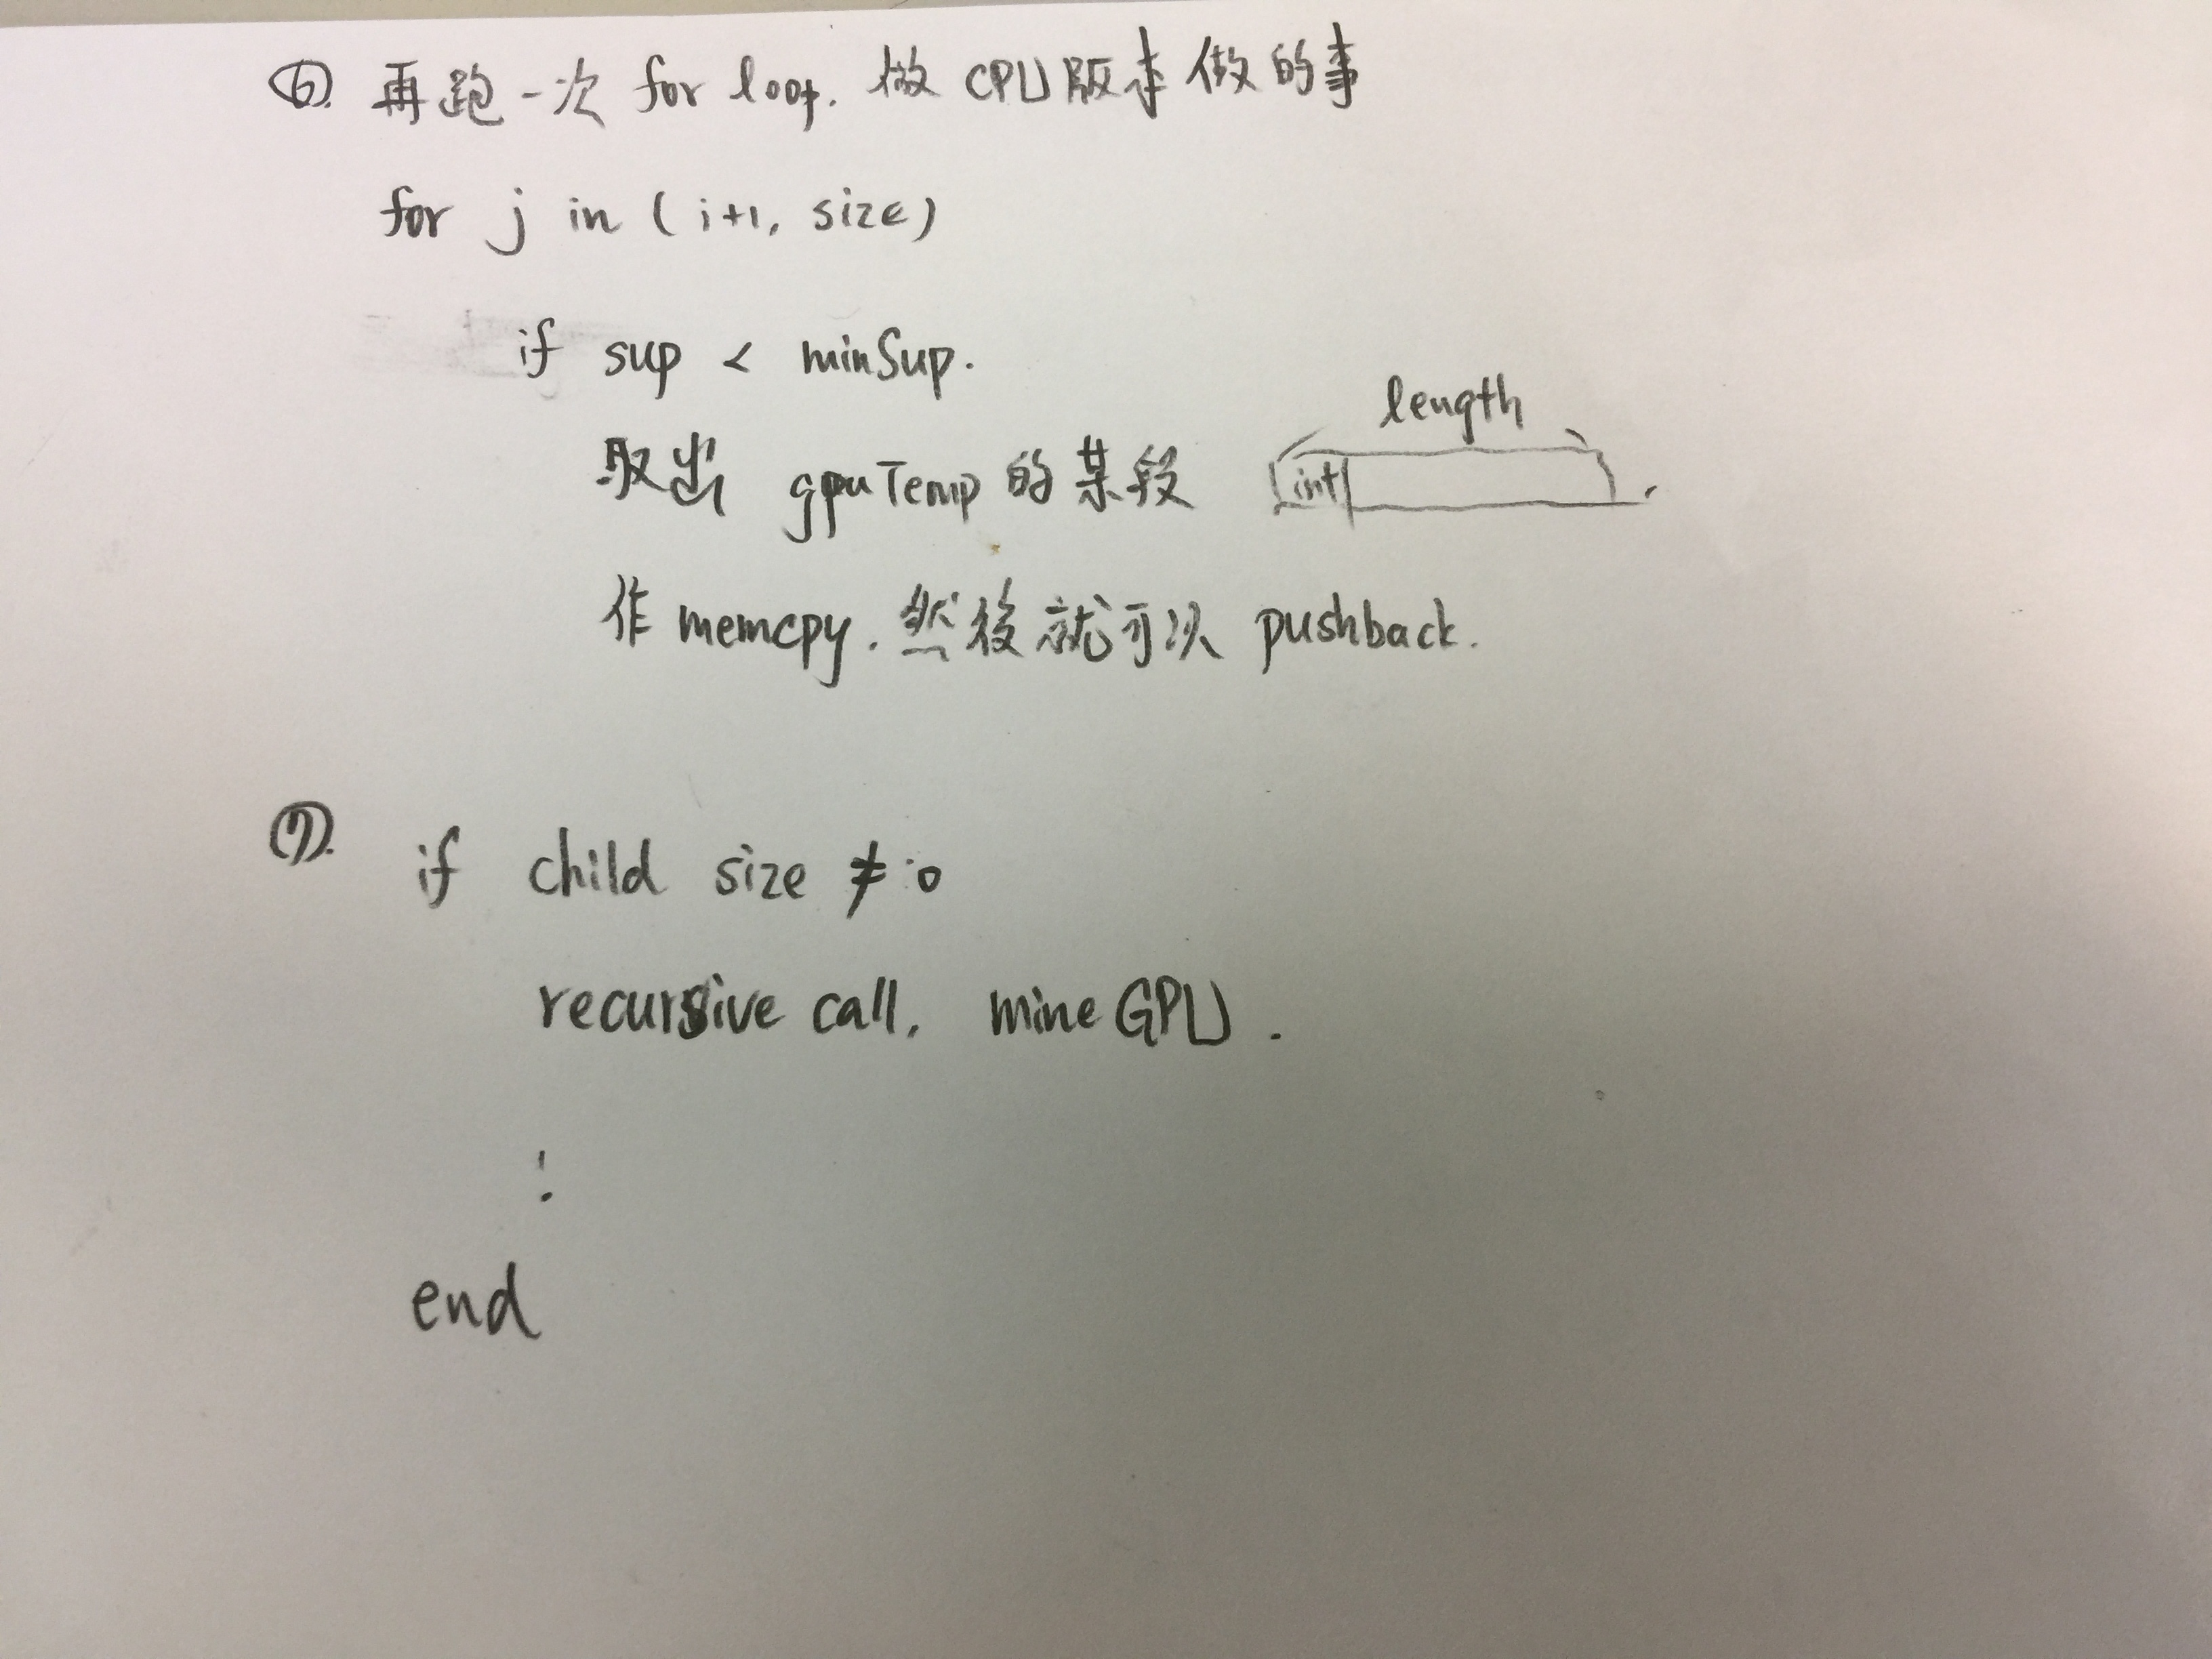 ⑥. 再跑一次 for loop. 做 CPU版本做的事
for j in (i+1, size)
if sup < minSup.
length
取出 gpuTemp 的某段 int
作 memcpy. 然後就可以 pushback.
⑦. if child size ≠ 0
recursive call, mineGPU.
:
end